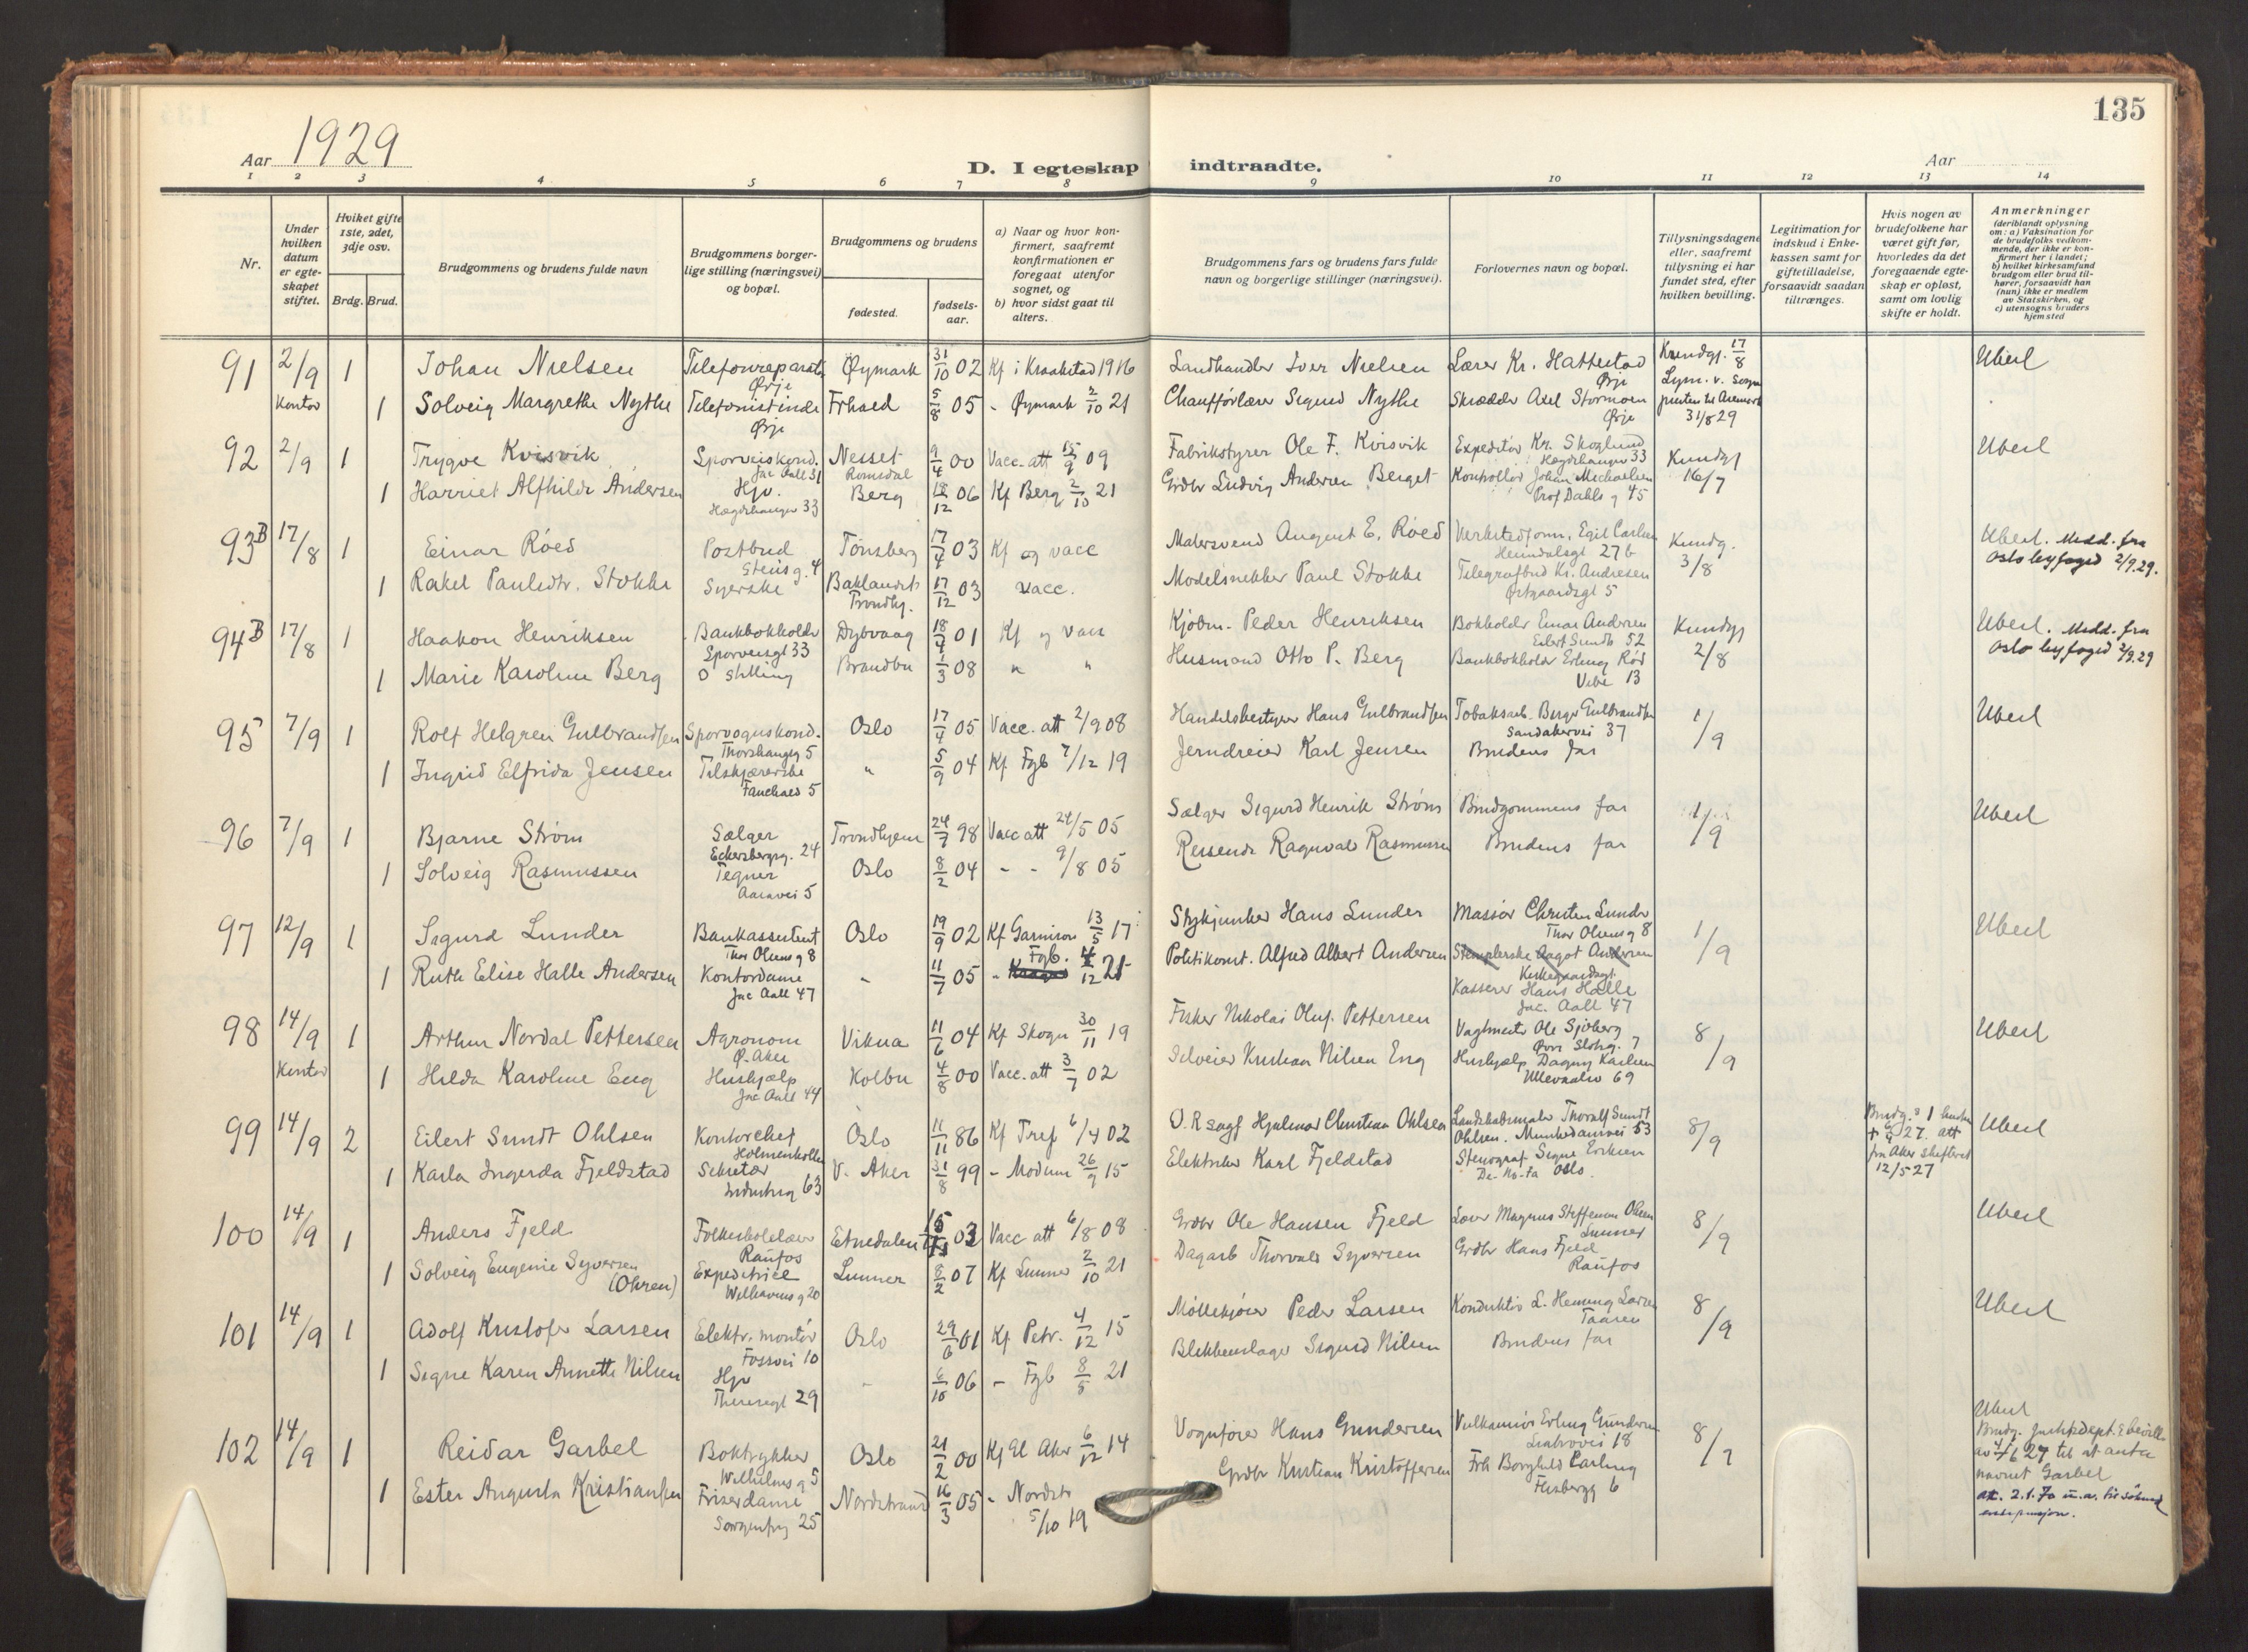 135
Aar 1929
D. I egteskap indtraadte.
Aar
1 2 3 4 5 6 7 8 9 10 11 12 13 14
Nr.
Under hvilken datum er egteskapet stiftet.
Hviket gifte 1ste, 2det, 3dje osv.
Brdg. Brud.
Brudgommens og brudens fulde navn
Brudgommens borgerlige stilling (næringsvei) og bopæl.
Brudgommens og brudens
fødested.
fødselsaar.
a) Naar og hvor konfirmert, saafremt konfirmationen er foregaat utenfor sognet, og
b) hvor sidst gaat til alters.
Brudgommens fars og brudens fars fulde navn og borgerlige stillinger (næringsvei).
Forlovernes navn og bopæl.
Tillysningsdagene eller, saafremt tillysning ei har fundet sted, efter hvilken bevilling.
Legitimation for indskud i Enkekassen samt for giftetilladelse, forsaavidt saadan tiltrænges.
Hvis nogen av brudefolkene har været gift før, hvorledes da det foregaaende egteskap er opløst, samt om lovlig skifte er holdt.
Anmerkninger (deriblandt oplysning om: a) Vaksination for de brudefolks vedkommende, der ikke er konfirmert her i landet; b) hvilket kirkesamfund brudgom eller brud tilhører, forsaavidt han (hun) ikke er medlem av Statskirken, og c) utensogns bruders hjemsted
91 2/9 1 Johan Nielsen Telefonreparatør Ørje Øymark 31/10 02 Kf i Kraakstad 1916 Landhandler Iver Nielsen Lærer Kr. Hattestad Ørje Kundgj. 17/8 Uberl
Kontor 1 Solveig Margrethe Nythe Telefonistinde Ørje Frhald 5/8 05 - Øymark 2/10 21 Chaufførlærer Sigurd Nythe Skrædder Axel Stormoen Ørje Lysn. v. Sognepresten til Aremark 31/8 29
92 2/9 1 Trygve Kvisvik Sporveiskond. Jac Aall 31 Nesset Romsdal 9/4 00 Vacc. att 15/9 09 Fabrikstyrer Ole F. Kvisvik Expeditør Kr. Skoglund Hægdehaugen 33 Kundgj 16/7 Uberl
1 Harriet Alfhilde Andersen Hjv. Hægdehaugen 33 Berg 18/12 06 Kf Berg 2/10 21 Grdbr Ludvig Andersen Berget Kontrollør Johan Michaelsen Prof Dahls g 45
93B 17/8 1 Einar Röed Postbud Stensg. 4 Tönsberg 17/7 03 Kf og vacc Malersvend August E. Röed Verkstedform. Egil Carlsen Heimdalsgt 27b Kundg. 3/8 Uberl. Medd. fra Oslo byfoged 2/9.29.
1 Rakel Paulsdtr. Stokke Syerske Baklandet Trondhj. 17/12 03 vacc. Modelsnekker Paul Stokke Telegrafbud Kr. Andresen Østgaardsgt 5
94B 17/8 1 Haakon Henriksen Bankbokholder Sporveisgt 33 Dybvaag 18/4 01 Kf og vacc Kjøbm. Peder Henriksen Bokholder Einar Andersen Eilert Sundts 52 Kundgj 2/8 Uberl. Medd. fra Oslo byfoged 2/9.29
1 Marie Karoline Berg O stilling Brandbu 1/3 08 " " Husmand Otto P. Berg Bankbokholder Erling Röd Vibe 13
95 7/9 1 Rolf Helgren Gulbrandsen Sporvognskond. Thorshaugg 5 Oslo 17/4 05 Vacc. att 2/9 08 Handelsbestyrer Hans Gulbrandsen Tobaksarb. Birger Gulbrandsen Sandakervei 37 1/9 Uberl
1 Ingrid Elfrida Jensen Tilskjærerske Fauchald 5 " 5/9 04 Kf Fgb 7/12 19 Jerndreier Karl Jensen Brudens far
96 7/9 1 Bjarne Ström Sælger Eckersbergg. 24 Trondhjem 24/7 98 Vacc att 24/5 05 Sælger Sigurd Henrik Ström Brudgommens far 1/9 Uberl
1 Solveig Rasmussen Tegner Aasavei 5 Oslo 8/2 04 - - 9/8 05 Reisende Ragnvald Rasmussen Brudens far
97 12/9 1 Sigurd Lunder Bankassistent Thor Olsens g 8 Oslo 19/9 02 Kf Garnison 13/5 17 Stykjunker Hans Lunder Massör Christen Lunder Thor Olsens g 8 1/9 Uberl
1 Ruth Elise Halle Andersen Kontordame Jac Aall 47 - 11/7 05 - Fgb. 4/12 21 Politikonst. Alfred Albert Andersen Stemplerske Aagot Andersen Kirkegaardsgt Kasserer Hans Halle Jac. Aall 47
98 14/9 1 Arthur Nordal Pettersen Agronom Ø. Aker Vikna 11/6 04 Kf Skogn 30/11 19 Fisker Nikolai Oluf Pettersen Vagtmester Ole Sjöberg Övre Slotsg. 7 8/9 Uberl
Kontor 1 Hilda Karoline Eng Hushjælp Jac Aall 44 Kolbu 4/8 00 Vacc. att 3/7 02 Selveier Kristian Nilsen Eng Hushjælp Dagny Karlsen Ullevaalsv 69
99 14/9 2 Eilert Sundt Ohlsen Kontorchef Holmenkollen Oslo 11/11 86 Kf Tref 6/4 02 O.R sagf Hjalmar Christian Ohlsen Landskabsmaler Thoralf Sundt Ohlsen. Munkedamsvei 53 8/9 Brudg.s 1 hustru + 6/4 27. att fra Aker skifteret 12/5 27 Uberl
1 Karla Ingerda Fjeldstad Sekretær Industrig 63 V. Aker 31/8 99 - Modum 26/9 15 Elektriker Karl Fjeldstad Stenograf Signe Eriksen De-No-Fa Oslo.
100 14/9 1 Anders Fjeld Folkeskolelærer Raufos Etnedalen 15/11 03 Vacc att 6/8 08 Grdbr Ole Hansen Fjeld Lærer Magnus Steffensen Olsen Lunner 8/9 Uberl
1 Solveig Eugenie Syversen (Ohren) Expeditrice Welhavens g 20 Lunner 8/2 07 Kf Lunner 2/10 21 Dagarb Thorvald Syversen Grdbr Hans Fjeld Raufos
101 14/9 1 Adolf Kristofer Larsen Elektr. montör Fossvei 10 Oslo 29/6 01 Kf Petr. 4/12 15 Möllekjörer Peder Larsen Konduktör L. Henning Larsen Taasen 8/9 Uberl
1 Signe Karen Annette Nilsen Hjv Theresegt 29 - 6/10 06 - Fgb 8/5 21 Blikkenslager Sigurd Nilsen Brudens far
102 14/9 1 Reidar Garbel Boktrykker Wilhelms g 5 Oslo 21/2 00 Kf El Aker 6/12 14 Vognfører Hans Gundersen Vulkanisör Erling Gundersen 18 8/7 Uberl Brudg. Justisdept. bevill. av 4/6 27 til at anta navnet Garbel
1 Ester Augusta Kristiansen Friserdame Sorgenfrig 25 Nordstrand 16/3 05 - Nordstr 5/10 19 Grdbr Kristian Kristoffersen Frk Borghild Carling 6